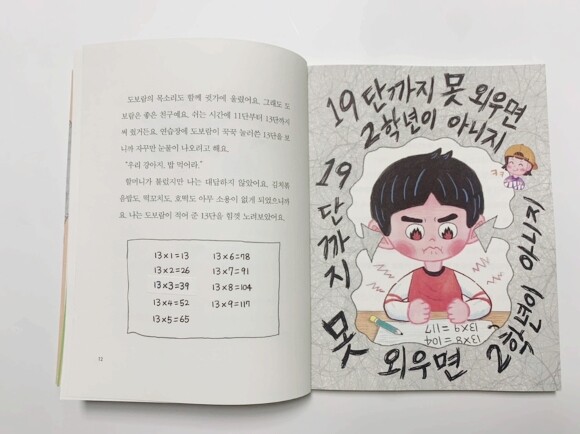 도보람의 목소리도 함께 귓가에 울렸어요. 그래도 도
보람은 좋은 친구예요. 쉬는 시간에 11단부터 13단까지
써 줬거든요. 연습장에 도보람이 꾹꾹 눌러쓴 13단을 보
니까 자꾸만 눈물이 나오려고 해요.
"우리 강아지, 밥 먹어라."
할머니가 불렀지만 나는 대답하지 않았어요. 김치볶
음밥도, 떡꼬치도, 호떡도 아무 소용이 없게 되었으니까
요. 나는 도보람이 적어 준 13단을 힘껏 노려보았어요.
13×1=13
13×2=26
13×3=39
13×4=52
13×5=65
13×6=78
13×7=91
13×8=104
13×9=117
12
19단까지 못 외우면
2학년이 아니지
19단까지 못 외우면 2학년이 아니지
13×8=104
13×9=117